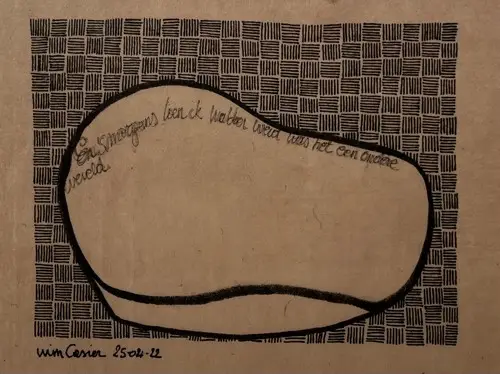 En smorgens toen ik wakker werd was het een andere
wereld
wim Casier 25-04-22